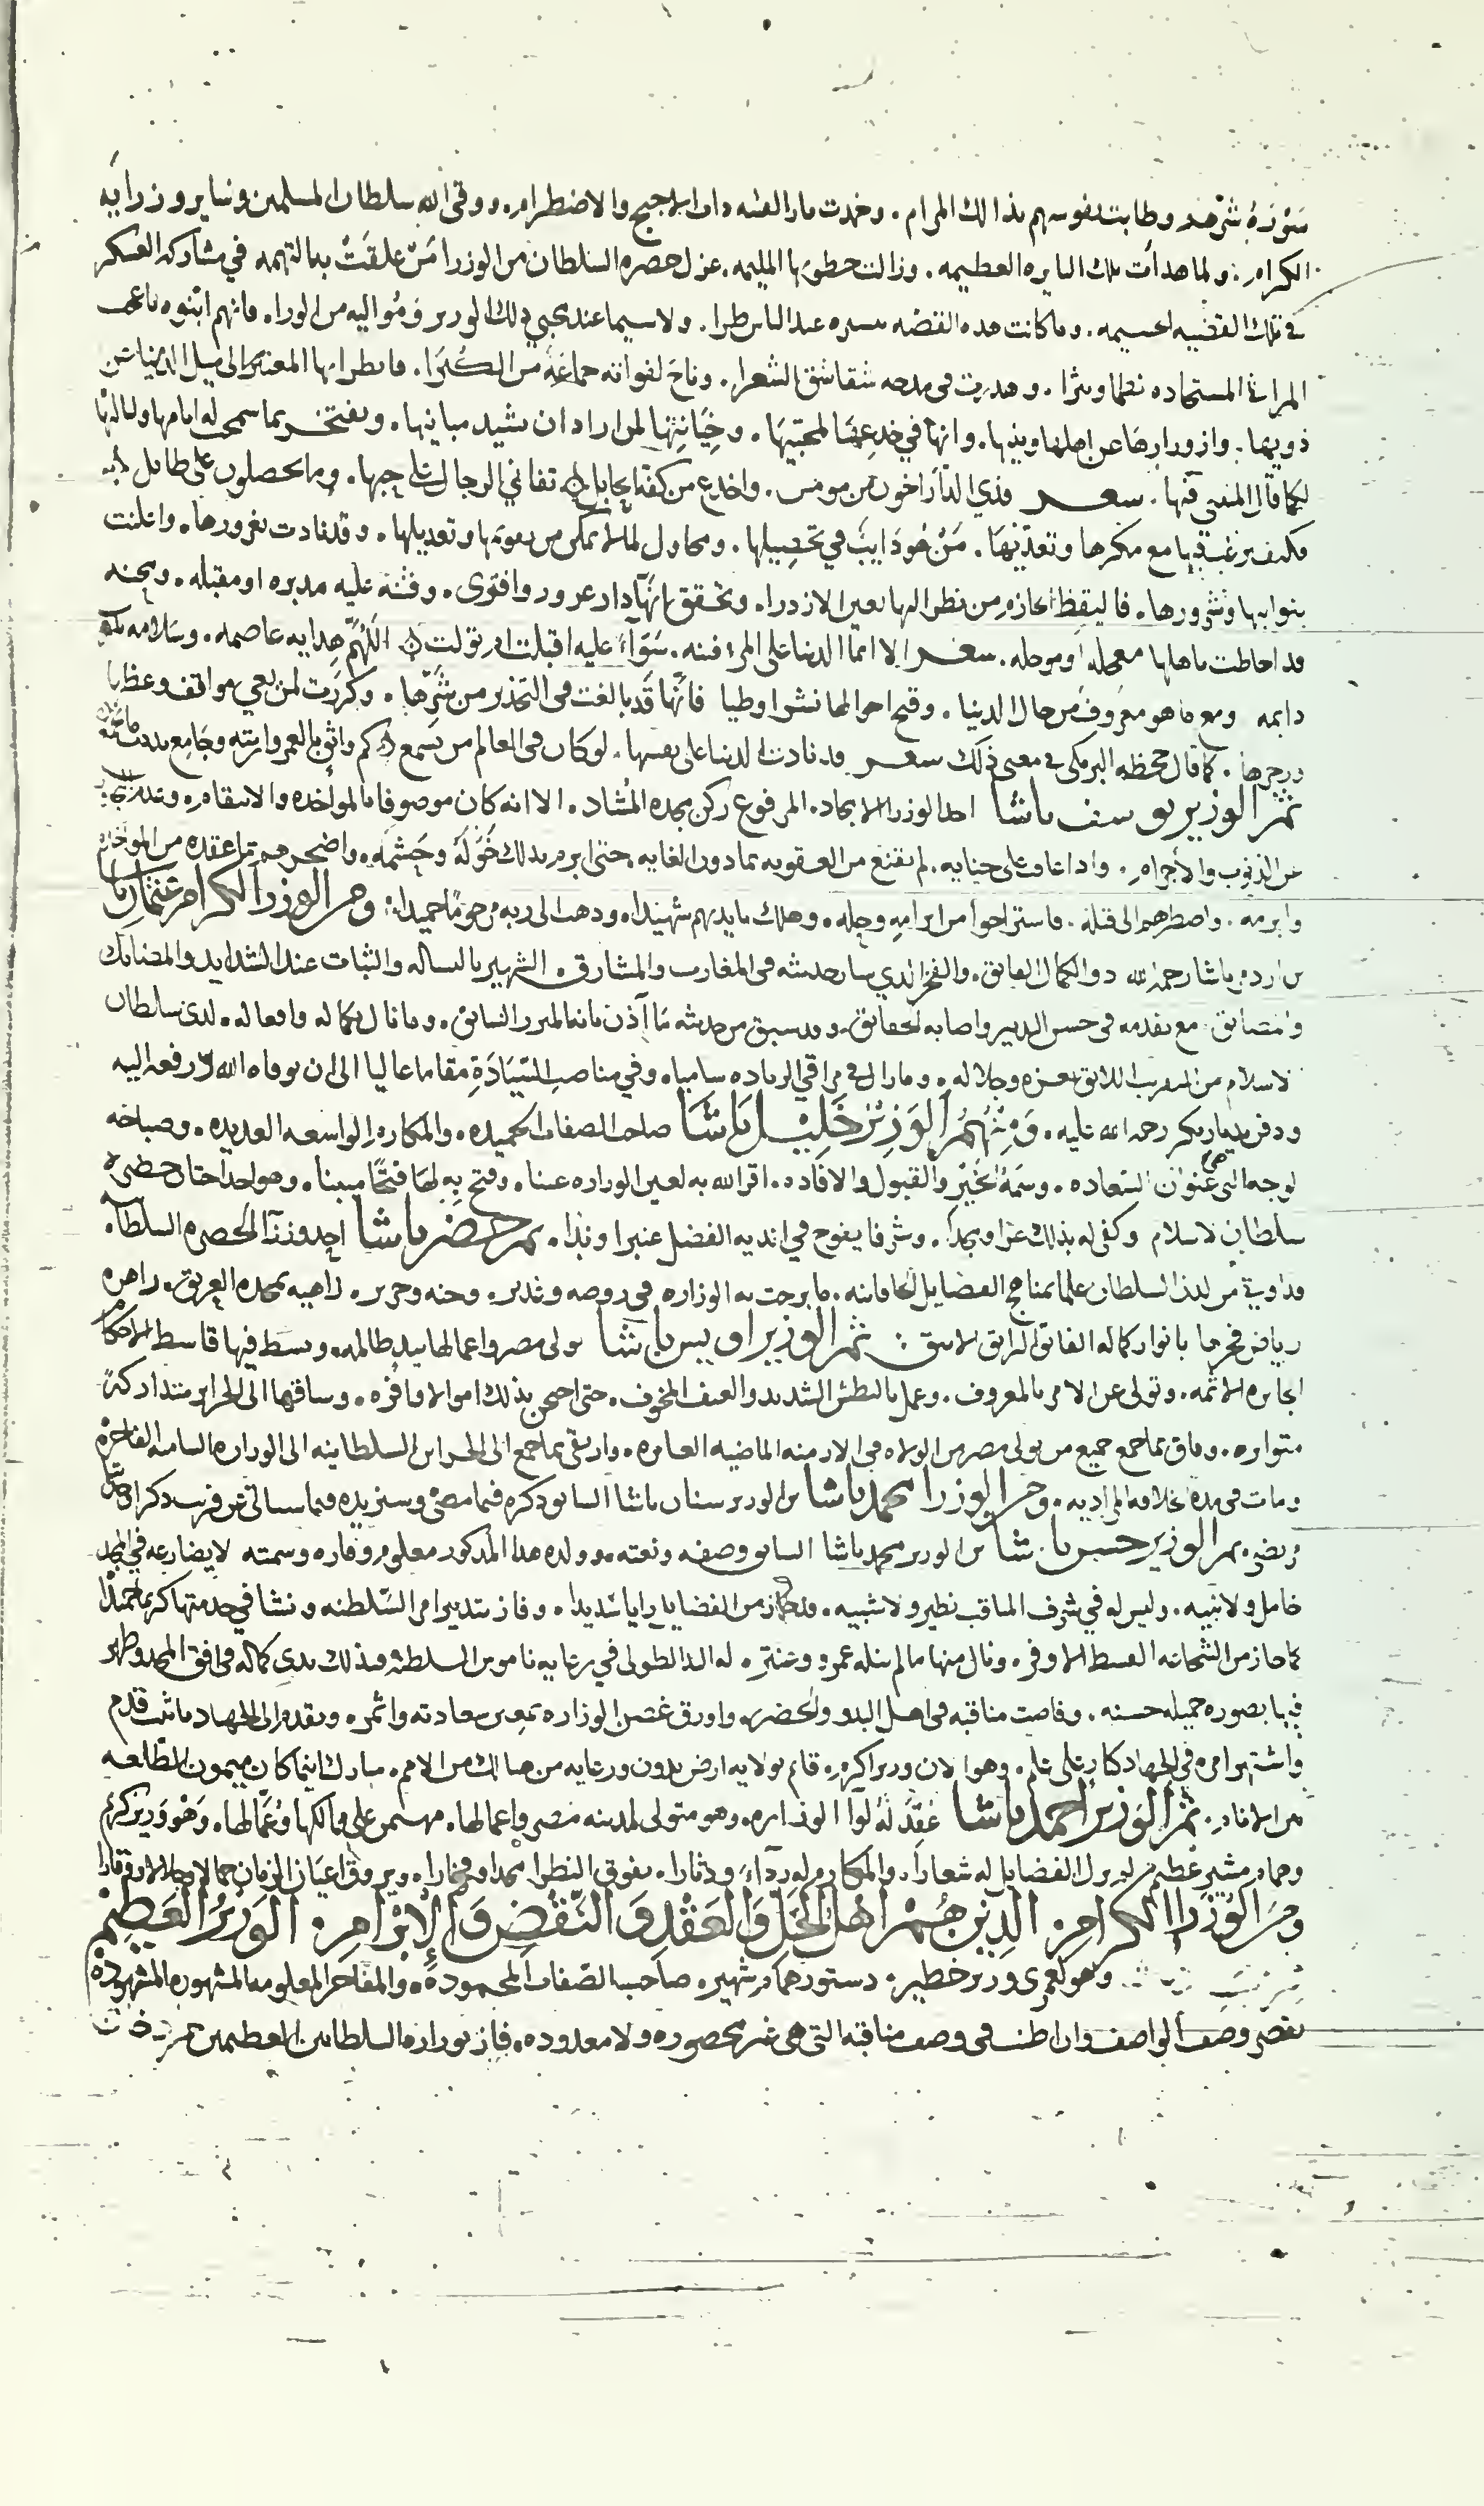 سورة شرهم وطابت نفوسهم بذالك المرام . وخمدت نار الفتنه ذات الاجيج والاضطرام . ووقى الله سلطان المسلمين وساير وزرايه
الكرام . ولما هدأت تلك النايره العظيمه . وزالت خطوبها المليمه . عزل حضره السلطان من الوزرا من علقت به التهمه في مشاركه العسكر
في تلك القضيه الجسيمه . وما كانت هذه القضيه يسيره عند الناس طرا . ولا سيما عند محبي ذلك الوزير ومواليه من الورا . فانهم ابنوه باعجب
المراثي المستجاده نظما ونثرا . وهدرت في مدحه شقاشق الشعرا . وناح لفواته جماعة من الكبرا . فانظر ايها المعتبر الى ميل الدنيا عن
ذويها . وازورارها عن اهلها وبنيها . وانها في خدعها لمحبيها . وخيانتها لمن اراد ان يشيد مبانيها . ويفتخر بما سمحت له ايامها ولياليها
كما قال المفتي فيها . شعر فذي الدار اخون من مومس . واخدع من كفة الحابل تفاني الرجال على حبها . وما يحصلون على طايل
فكيف يرغب فيها مع مكرها وتعذيبها . من هو دايب في تحصيلها . ومحاول لما لا يمكن من تقويمها وتعديلها . وقد نادت بغرورها . واعلنت
بنوايبها وشرورها . فاليقظ الحازم من نظر اليها بعين الازدرا . وتحقق انها دار غرور وافترى . وفتنة عليه مدبره او مقبله . ومحنه
قد احاطت باهلها معجله او موجله . شعر الا انما الدنيا على المرء فتنه . سواء عليه اقبلت او تولت اللهم هدايه عاصمه . وسلامه
دايمه ومع ما هو معروف من حال الدنيا . وقبح احوالها نشرا وطيا فانها قد بالغت في التحذير من شرها . وكررت لمن يعي مواقف وعظها
وزجرها . كما قال جحظه البرمكي في معنى ذلك شعر قد نادت الدنيا على نفسها . لو كان في العالم من يسمع كم واثق بالعمر واريته وجامع بددت ما
ثم الوزير يوسف باشا احد الوزرا الامجاد . المرفوع ركن مجده المشاد . الا انه كان موصوفا بالمواخذه والانتقام .
عن الذنوب والاجرام . واذا عاقب على جنايه . لم يقنع من العقوبه بما دون الغايه . حتى ابرم بذلك خوله وحشمه . واضجرهم بما عقده من المواخذه
وابرمه . واضطرهم الى قتله . فاستراحوا من ابرامه وحله . وهلك بايديهم شهيدا . وذهب الى ربه مرحوما حميدا : ومن الوزرا الكرام عثمان باشا
بن ازدمر باشا رحمه الله ذو الكمال الفايق . والفخر الذي سار حديثه في المغارب والمشارق . الشهير بالبساله والثبات عند الشدايد والمضايق
مع تقدمه في حسن التدبير واصابه الحقايق . وقد سبق من حديثه ما آذن بانه المبرز السابق . وما نال بكماله وافعاله . لدى سلطان
الاسلام من التقريب اللايق بعزه وجلاله . وما زال في مراقي الزياده ساميا . وفي مناصب السيادة مقاما عاليا الى ان توفاه الله ورفعه اليه
ودفن بديار بكر رحمه الله عليه . ومنهم الوزير خليل باشا صاحب الصفات الحميده . والمكارم الواسعه العديده . وصباحه
الوجه التي هي عنوان السعاده . وسمة الخير والقبول والافاده . اقر الله به لعين الوزاره عينا . وفتح به لها فتحا مبينا . وهو احد اختان حضرة
سلطان الاسلام وكفى له بذلك عزا ومجدا . وشرفا يفوح في انديه الفضل عنبرا وندا . ثم خضر باشا احد وزرآ الحضره السلطانيه
قد اوتي من لدن السلطان علما بمناهج الفضايل الخاقانيه . ما برحت به الوزاره في روضه وغدير . وجنه وحرير . زاهيه بمجده العريق . زاهره
رياض فخرها بانوار كماله الفايق الرايق الانيق : ثم الوزير اويس باشا تولى مصر واعمالها بيد ظالمه . وبسط فيها قاسط الاحكام
الجايره الاثمه . وتولى عن الامر بالمعروف . وعمل بالبطش الشديد والعسف المخوف . حتى احتجن بذلك اموالا وافره . وساقها الى الخزاين متداركة
متواتره . وفاق بما جمع جميع من تولى مصر من الولاه في الازمنه الماضيه الغابره . وارتقى بما جمع الى الخزاين السلطانيه الى الوزاره الساميه الفاخره
ومات في مدة الخلافه المراديه . ومن الوزرا محمد باشا بن الوزير سنان باشا السابق ذكره فيما مضى وسنزيده فيما سياتي عن قريب ذكرا
ثم الوزير حسن باشا بن الوزير محمد باشا السابق وصفه ونعته . وولده هذا المذكور معلوم وقاره وسمته لا يضارعه في المجد
خامل ولا نبيه . وليس له في شرف المناقب نظير ولا شبيه . قد حاز من القضايا رايا سديدا . وفاز بتدبير امر السلطنه ونشا في خدمتها كريما حميدا
كما حاز من الشجاعه القسط الاوفر . ونال منها ما لم ينله عمرو وعنتر . له اليد الطولى في رعايه ناموس السلطنه فبذلك بدى كماله في افق المجد وظهر
فيها بصوره جميله حسنه . وفاضت مناقبه في اهل البدو والحضر . واورق غصن الوزاره بمعين سعادته واثمر . وتقدم الى الجهاد ماثبت قدم
واشتهر امره في الجهاد كنار على علم . وهو الان وزير اكرم . قام بولايه ارض بدون ورعايه من هنالك من الامم . مبارك اينما كان ميمون الطلعه
من الانام . ثم الوزير احمد باشا عقد له لوآ الوزاره . وهو متولى لمدينه مصر واعمالها . مهيمن على ممالكها وعمالها . وهو وزير كريم
وهمام ومشير عظيم لم يزل الفضايل له شعارا . والمكارم له رداء ودثارا . يفوق النظرا مجدا وفخارا . ويروق اعيان الزمان جمالا وجلالا ووقارا
ومن الوزرا الكرام . الذين هم اهل الحل والعقد والنقض والابرام . الوزير العظيم
وهو لعمري وزير خطير . دستور همام شهير . صاحب الصفات المحمودة . والمفاخر المعلومه المشهوره المشهوده
يقصر وصف الواصف وان اطنب في وصف مناقبه التي هي غير محصوره ولا معدوده . فاز بوزارة السلطانين العظيمين